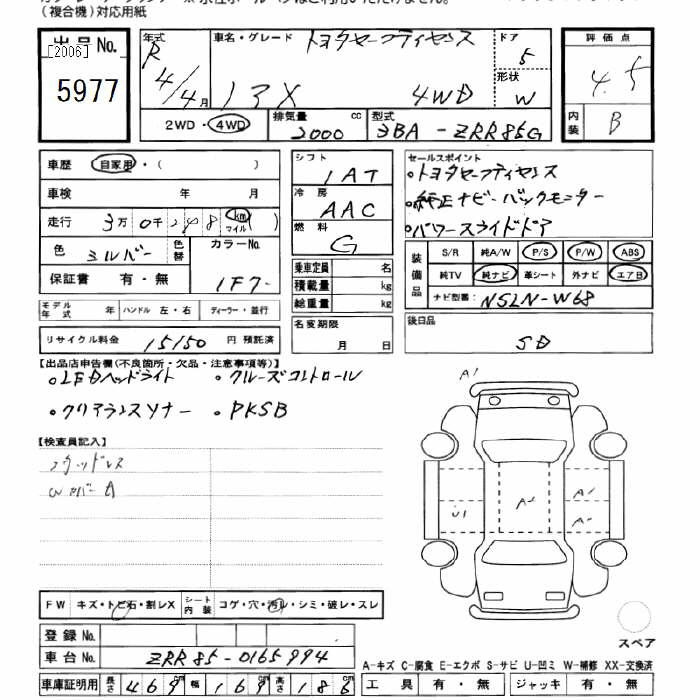 (複合機)対応用紙
出品No. [2006] 5977
年式 R4/4月
車名・グレード トヨタセーフティセンス
ドア 5
形状 W
4WD
2WD・4WD
排気量 2000 cc
型式 3BA-ZRR85G
評価点 4.5
内装 B
車歴 自家用・( )
車検 年 月
走行 3万0千248 km マイル ( )
色 シルバー 色替 カラーNo. 1F7
保証書 有・無
モデル年式 年 ハンドル 左・右 ディーラー・並行
リサイクル料金 15150 円 預託済
シフト 1AT
冷房 AAC
燃料 G
乗車定員 名
積載量 kg
総重量 kg
名変期限 月 日
セールスポイント
・トヨタセーフティセンス
・純正ナビ・バックモニター
・パワースライドドア
装備品 S/R 純A/W P/S P/W ABS
純TV 純ナビ 革シート 外ナビ エアB
ナビ型番: NSLN-W68
後日品 SD
【出品店申告欄(不良箇所・欠品・注意事項等)】
・LEDヘッドライト ・クルーズコントロール
・クリアランスソナー ・PKSB
【検査員記入】
A
FW キズ・トビ石・割レX シート内装 コゲ・穴・汚レ・シミ・破レ・スレ
登録No.
車台No. ZRR85-0165994
車庫証明用 長さ 469cm 幅 169cm 高さ 186cm
A1
U1
A1
スペア
A-キズ C-腐食 E-エクボ S-サビ U-凹ミ W-補修 XX-交換済
工具 有・無 ジャッキ 有・無